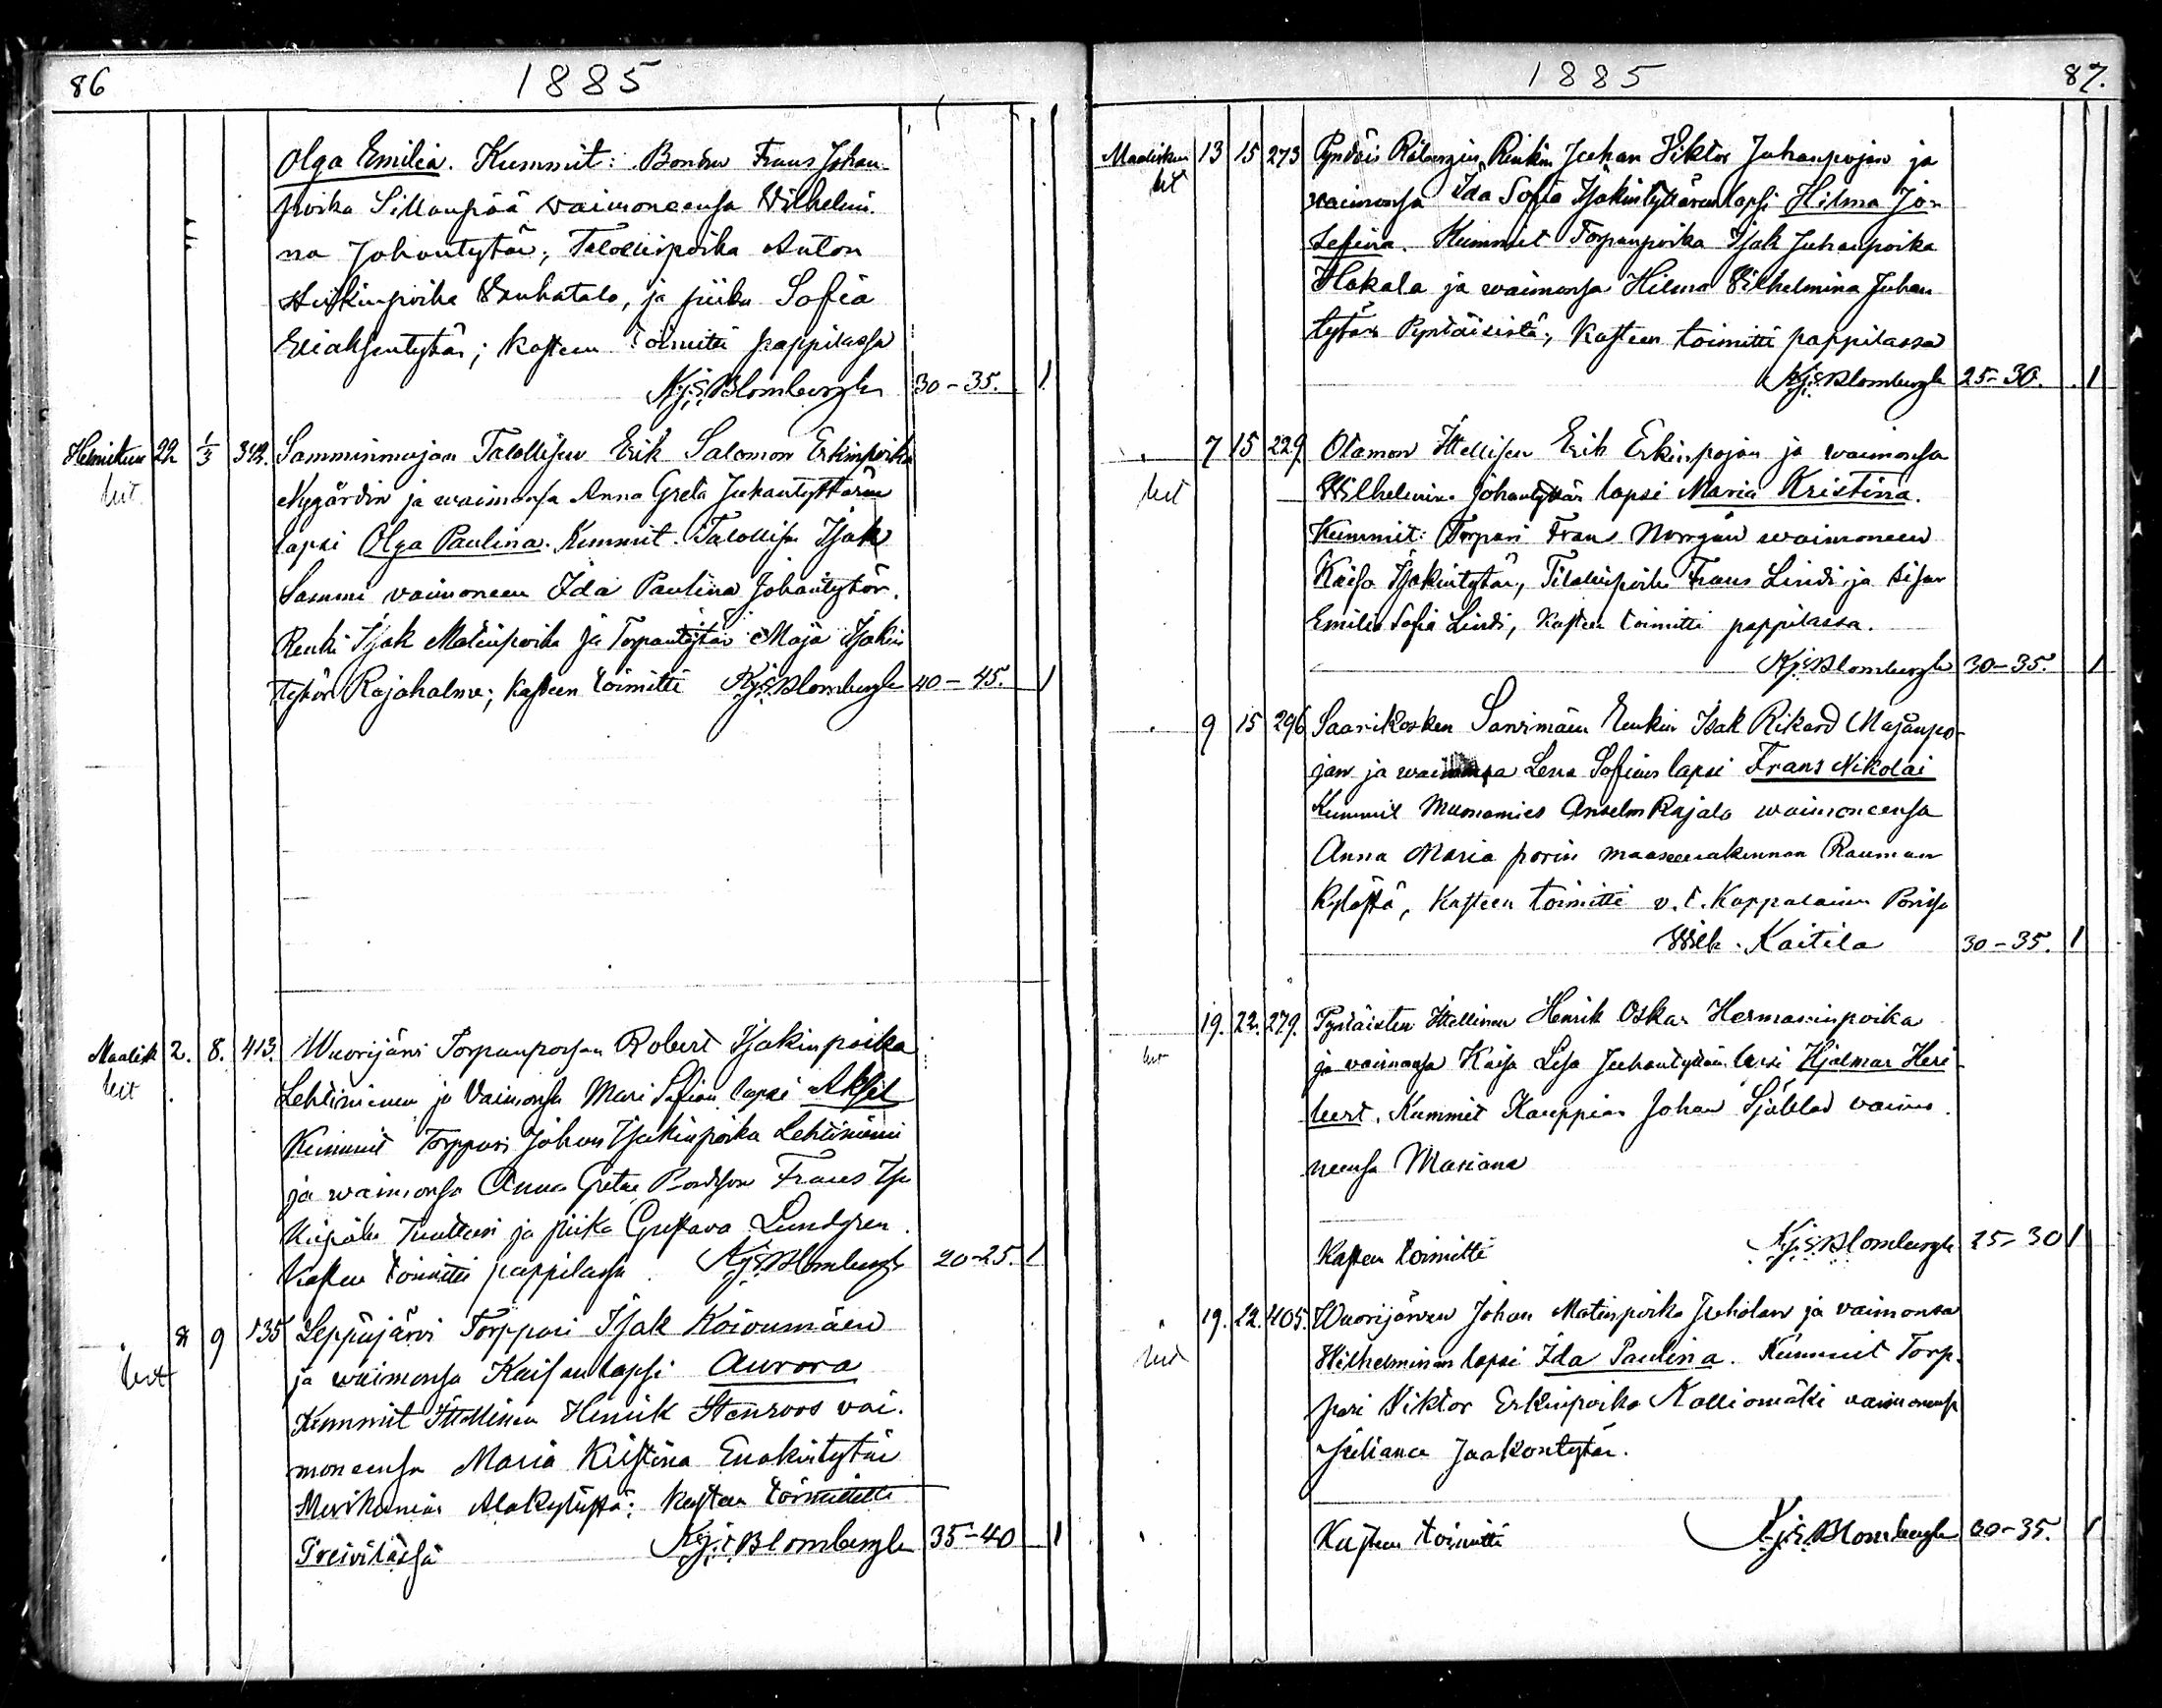 86
1885
Olga Emilia. Kummit: Bonden Frans Johan
poika Sillanpää waimoneensa Wilhelmi
na Johantytär; Talollispoika Anton
poika Vanhatalo, ja piika Sofia
tytär; kasteen toimitti pappilassa
Kj: S: Blombergh 30-35. 1
Helmikuu 22 1/3 342. Samminmajan Talollisen Erik Salomon Erkinpoika
Nygårdin ja waimonsa Anna Greta Juhantyttären
lapsi Olga Paulina. Kummit. Talollisen Isak
Sammi vaimoneen Ida Paulina Johantytär.
Renki Isak Matinpoika ja Torpantytär Maja Isakin
tytär Rajahalme; Kasteen toimitti Kj: S: Blombergh 40-45. 1
Maalisk 2. 8. 413. Wuorijärvi Torpanpojan Robert Isakinpoika
Lehtiniemen ja Vaimonsa Mari Sofian lapsi Aksel
Kummit Torppari Johan Isakinpoika Lehtiniemi
ja waimonsa Anna Greta Frans
ja piika Gustava Lundgren.
Kasteen toimitti pappilassa. Kj: S: Blombergh 20-25. 1
8 9 135 Leppäjärvi Torppari Isak Koivumäen
ja waimonsa Kaisan lapsi Aurora
Kummit Itellinen Henrik Stenroos vai-
moneensa Maria Kristina Enokintytär
Merikarvian Alakylästä: kasteen toimitti
Kj: S: Blombergh 35-40 1
1885
87.
Maaliskuu 13 15 273 Renkin Juhan Viktor Juhanpojan ja
waimonsa Ida Sofia Isakintyttären lapsi Hilma Jo-
sefina. Kummit Torpanpoika Isak Juhanpoika
Hakala ja waimonsa Hilma Wilhelmina Juhan
tytär; Kasteen toimitti pappilassa
Kj: S: Blombergh 25-30. 1
7 15 229. Otamon Itellisen Erik Erkinpojan ja waimonsa
Wilhelmina Johantyttär lapsi Maria Kristina.
Kummit: Torpari Frans Norrgån waimoneen
Kaisa Isakintytär, Talollispoika Frans Lindi ja sisar
Emilia Sofia Lindi, Kasteen toimitti pappilassa.
Kj: S: Blombergh 30-35. 1
9 15 296 Saarikosken Isak Rikard Majanpo-
jan ja waimonsa Lena Sofian lapsi Frans Nikolai
Kummit Muonamies Anselm Rajala waimoneensa
Anna Maria porin maaseurakunnan Rauman
Kylästä, Kasteen toimitti v. t. Kappalainen Porissa
Wilh. Kaitila 30-35. 1
19. 22. 279. Itellinen Henrik Oskar Hermanninpoika
ja vaimonsa Kaisa Lisa Juhantyttären lapsi Hjalmar Heri
bert. Kummit Kauppias Johan Sjöblad vaimo
neensa Mariana
Kasteen toimitti Kj: S: Blombergh 25-30 1
19. 22. 405. Wuorijärven Johan Matinpoika Juholan ja vaimonsa
Wilhelminan lapsi Ida Paulina. Kummit Torp-
pari Viktor Erkinpoika Kalliomäki vaimoneensa
Juliana Jaakontytär.
Kasteen toimitti Kj: S: Blombergh 30-35. 1